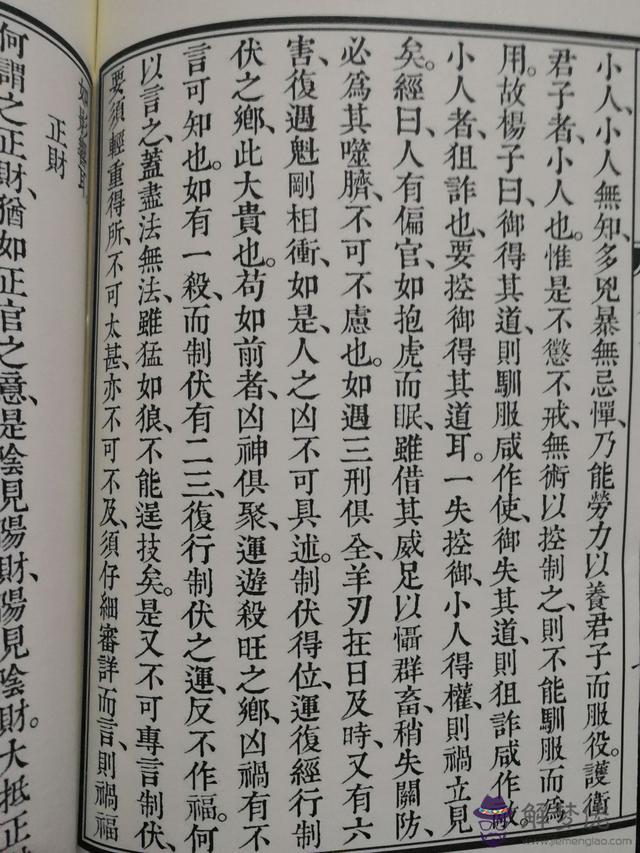 小人、小人無知、多兇暴無忌憚、乃能勞力以養君子而服役。護衛
君子者、小人也。惟是不懲不戒、無術以控制之、則不能馴服而爲
用。故楊子曰、御得其道、則馴服咸作使、御失其道、則狙詐咸作敵。
小人者、狙詐也、要控御得其道耳。一失控御、小人得權、則禍立見
矣。經曰、人有偏官、如抱虎而眠、雖借其威足以懾群畜、稍失關防、
必爲其噬臍、不可不慮也。如遇三刑俱全、羊刃在日及時、又有六
害、復遇魁剛相衝、如是、人之凶不可具述。制伏得位、運復經行制
伏之鄉、此大貴也。苟如前者、凶神俱聚、運遊殺旺之鄉、凶禍有不
言可知也。如有一殺、而制伏有二三、復行制伏之運、反不作福。何
以言之、蓋盡法無法、雖猛如狼、不能逞技矣。是又不可專言制伏、
要須輕重得所、不可太甚、亦不可不及、須仔細審詳而言、則禍福
如影響耳
正財
何謂之正財、猶如正官之意、是陰見陽財、陽見陰財。大抵正財
解梦佬
www.jiemenglao.com